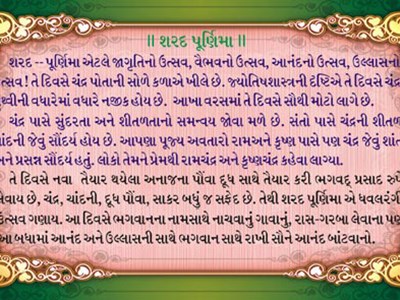 || શરદ પૂર્ણિમા ||
શરદ -- પૂર્ણિમા એટલે જાગૃતિનો ઉત્સવ, વૈભવનો ઉત્સવ, આનંદનો ઉત્સવ, ઉલ્લાસનો
ત્સવ ! તે દિવસે ચંદ્ર પોતાની સોળે કળાએ ખીલે છે. જ્યોતિષશાસ્ત્રની દૃષ્ટિએ તે દિવસે ચંદ્ર
થ્વીની વધારેમાં વધારે નજીક હોય છે. આખા વરસમાં તે દિવસે સૌથી મોટો લાગે છે.
ચંદ્ર પાસે સુંદરતા અને શીતળતાનો સમન્વય જોવા મળે છે. સંતો પાસે ચંદ્રની શીતળ
ચાંદની જેવું સૌંદર્ય હોય છે. આપણા પૂજ્ય અવતારો રામઅને કૃષ્ણ પાસે પણ ચંદ્ર જેવું શાંત
અને પ્રસન્ન સૌંદર્ય હતું. લોકો તેમને પ્રેમથી રામચંદ્ર અને કૃષ્ણચંદ્ર કહેવા લાગ્યા.
તે દિવસે નવા તૈયાર થયેલા અનાજના પૌંવા દૂધ સાથે તૈયાર કરી ભગવદ્ પ્રસાદ રુપે
લેવાય છે, ચંદ્ર, ચાંદની, દૂધ પૌંવા, સાકર બધું જ સફેદ છે. તેથી શરદ પૂર્ણિમા એ ધવલરંગી
ઉત્સવ ગણાય. આ દિવસે ભગવાનના નામસાથે નાચવાનું ગાવાનું, રાસ-ગરબા લેવાના પણ
આ બધામાં આનંદ અને ઉલ્લાસની સાથે ભગવાન સાથે રાખી સૌને આનંદ બાંટવાનો.